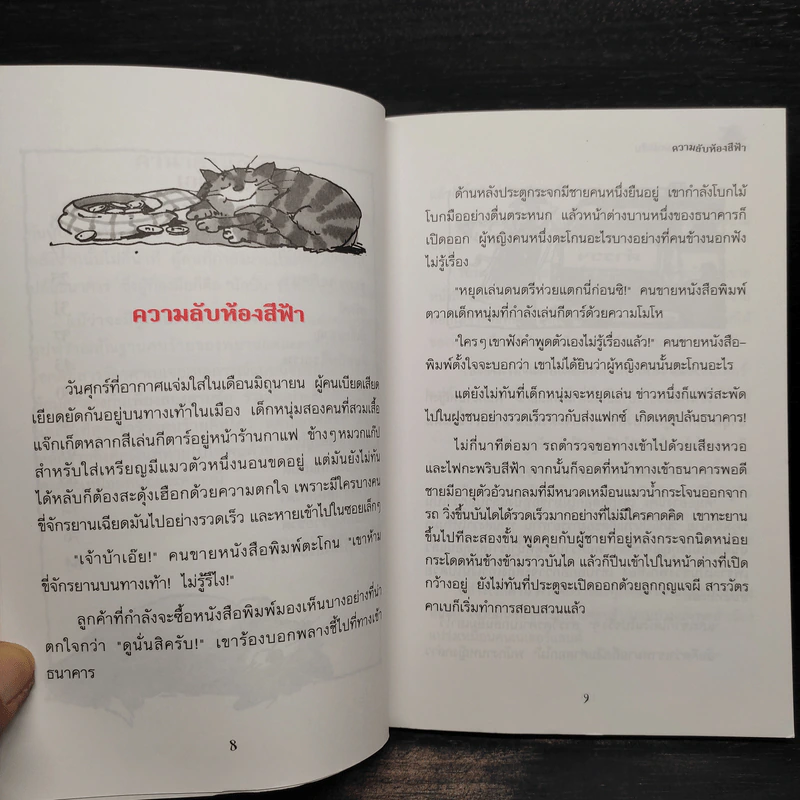 ความลับห้องสีฟ้า
วันศุกร์ที่อากาศแจ่มใสในเดือนมิถุนายน ผู้คนเบียดเสียด
เยียดยัดกันอยู่บนทางเท้าในเมือง เด็กหนุ่มสองคนที่สวมเสื้อ
แจ๊กเก็ตหลากสีเล่นกีตาร์อยู่หน้าร้านกาแฟ ข้างๆหมวกแก๊ป
สำหรับใส่เหรียญมีแมวตัวหนึ่งนอนขดอยู่ แต่มันยังไม่ทัน
ได้หลับก็ต้องสะดุ้งเฮือกด้วยความตกใจ เพราะมีใครบางคน
ขี่จักรยานเฉียดมันไปอย่างรวดเร็ว และหายเข้าไปในซอยเล็กๆ
"เจ้าบ้าเอ๊ย!" คนขายหนังสือพิมพ์ตะโกน "เขาห้าม
ขี่จักรยานบนทางเท้า! ไม่รู้รึไง!"
ลูกค้าที่กำลังจะซื้อหนังสือพิมพ์มองเห็นบางอย่างที่น่า
ตกใจกว่า "ดูนั่นสิครับ!" เขาร้องบอกพลางชี้ไปที่ทางเข้า
ธนาคาร
8
ความลับห้องสีฟ้า
ด้านหลังประตูกระจกมีชายคนหนึ่งยืนอยู่ เขากำลังโบกไม้
โบกมืออย่างตื่นตระหนก แล้วหน้าต่างบานหนึ่งของธนาคารก็
เปิดออก ผู้หญิงคนหนึ่งตะโกนอะไรบางอย่างที่คนข้างนอกฟัง
ไม่รู้เรื่อง
"หยุดเล่นดนตรีห่วยแตกนี่ก่อนซิ!" คนขายหนังสือพิมพ์
ตวาดเด็กหนุ่มที่กำลังเล่นกีตาร์ด้วยความโมโห
"ใครๆเขาฟังคำพูดตัวเองไม่รู้เรื่องแล้ว!" คนขายหนังสือ-
พิมพ์ตั้งใจจะบอกว่า เขาไม่ได้ยินว่าผู้หญิงคนนั้นตะโกนอะไร
แต่ยังไม่ทันที่เด็กหนุ่มจะหยุดเล่น ข่าวหนึ่งก็แพร่สะพัด
ไปในฝูงชนอย่างรวดเร็วราวกับส่งแฟกซ์ เกิดเหตุปล้นธนาคาร!
ไม่กี่นาทีต่อมา รถตำรวจขอทางเข้าไปด้วยเสียงหวอ
และไฟกะพริบสีฟ้า จากนั้นก็จอดที่หน้าทางเข้าธนาคารพอดี
ชายมีอายุตัวอ้วนกลมที่มีหนวดเหมือนแมวน้ำกระโจนออกจาก
รถ วิ่งขึ้นบันไดได้รวดเร็วมากอย่างที่ไม่มีใครคาดคิด เขาทะยาน
ขึ้นไปทีละสองขั้น พูดคุยกับผู้ชายที่อยู่หลังกระจกนิดหน่อย
กระโดดหันข้างข้ามราวบันได แล้วก็ปีนเข้าไปในหน้าต่างที่เปิด
กว้างอยู่ ยังไม่ทันที่ประตูจะเปิดออกด้วยลูกกุญแจผี สารวัตร
คาเบก็เริ่มทำการสอบสวนแล้ว
9